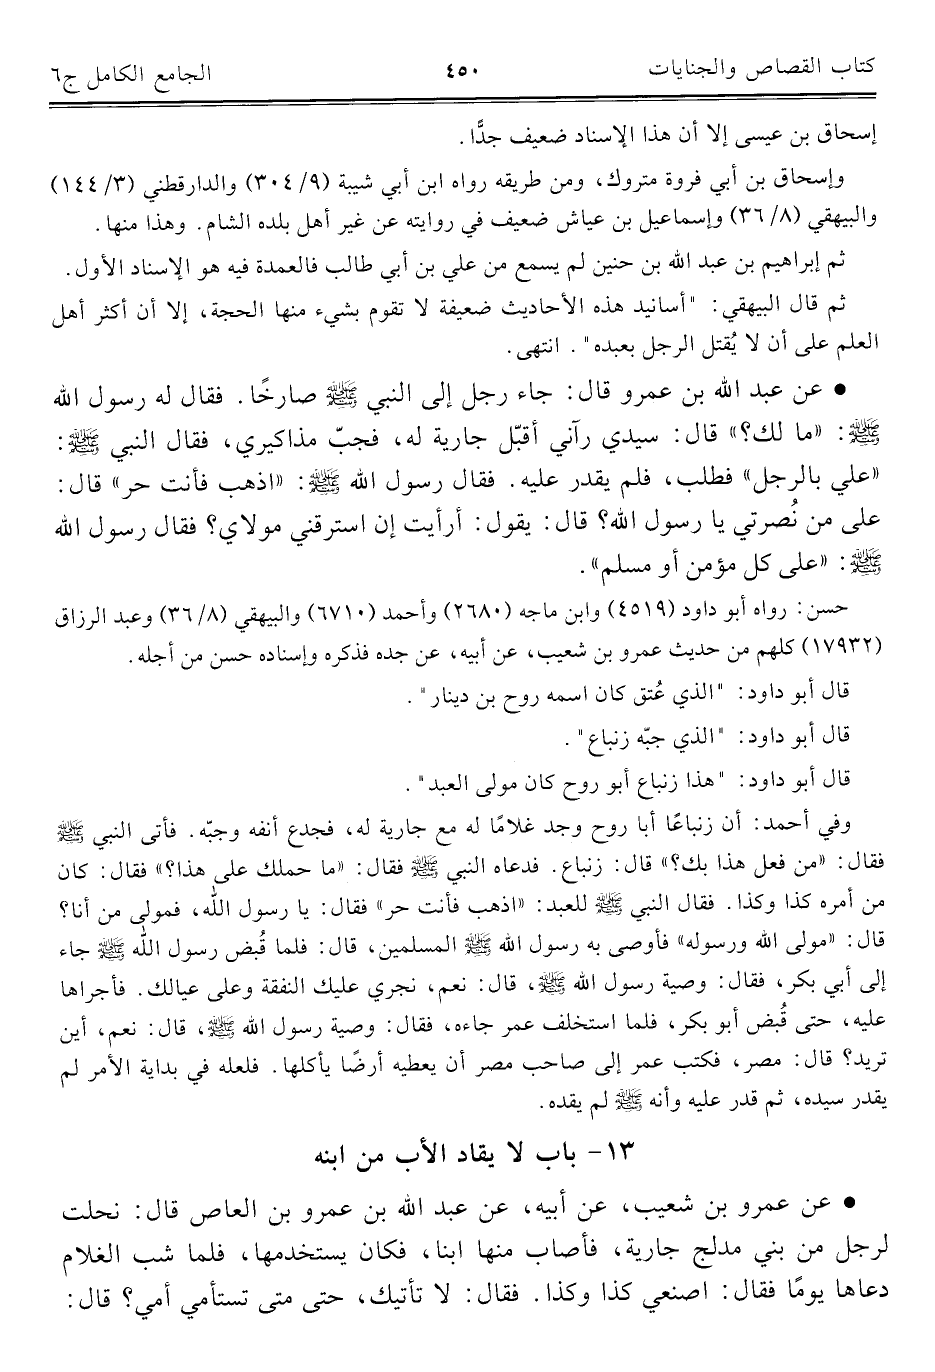 كتاب القصاص والجنايات ٤٥٠ الجامع الكامل ج٦
إسحاق بن عيسى إلا أن هذا الإسناد ضعيف جدًّا.
وإسحاق بن أبي فروة متروك، ومن طريقه رواه ابن أبي شيبة (٩/ ٣٠٤) والدارقطني (٣/ ١٤٤)
والبيهقي (٨/ ٣٦) وإسماعيل بن عياش ضعيف في روايته عن غير أهل بلده الشام. وهذا منها.
ثم إبراهيم بن عبد الله بن حنين لم يسمع من علي بن أبي طالب فالعمدة فيه هو الإسناد الأول.
ثم قال البيهقي: "أسانيد هذه الأحاديث ضعيفة لا تقوم بشيء منها الحجة، إلا أن أكثر أهل
العلم على أن لا يُقتل الرجل بعبده". انتهى.
• عن عبد الله بن عمرو قال: جاء رجل إلى النبي ﷺ صارخًا. فقال له رسول الله
ﷺ: «ما لك؟» قال: سيدي رآني أقبّل جارية له، فجبّ مذاكيري، فقال النبي ﷺ:
«علي بالرجل» فطلب، فلم يقدر عليه. فقال رسول الله ﷺ: «اذهب فأنت حر» قال:
على من نُصرتي يا رسول الله؟ قال: يقول: أرأيت إن استرقني مولاي؟ فقال رسول الله
ﷺ: «على كل مؤمن أو مسلم».
حسن: رواه أبو داود (٤٥١٩) وابن ماجه (٢٦٨٠) وأحمد (٦٧١٠) والبيهقي (٨/ ٣٦) وعبد الرزاق
(١٧٩٣٢) كلهم من حديث عمرو بن شعيب، عن أبيه، عن جده فذكره وإسناده حسن من أجله.
قال أبو داود: "الذي عُتق كان اسمه روح بن دينار".
قال أبو داود: "الذي جبّه زنباع".
قال أبو داود: "هذا زنباع أبو روح كان مولى العبد".
وفي أحمد: أن زنباعًا أبا روح وجد غلامًا له مع جارية له، فجدع أنفه وجبّه. فأتى النبي ﷺ
فقال: «من فعل هذا بك؟» قال: زنباع. فدعاه النبي ﷺ فقال: «ما حملك على هذا؟» فقال: كان
من أمره كذا وكذا. فقال النبي ﷺ للعبد: «اذهب فأنت حر» فقال: يا رسول الله، فمولى من أنا؟
قال: «مولى الله ورسوله» فأوصى به رسول الله ﷺ المسلمين، قال: فلما قُبض رسول الله ﷺ جاء
إلى أبي بكر، فقال: وصية رسول الله ﷺ، قال: نعم، نجري عليك النفقة وعلى عيالك. فأجراها
عليه، حتى قُبض أبو بكر، فلما استخلف عمر جاءه، فقال: وصية رسول الله ﷺ، قال: نعم، أين
تريد؟ قال: مصر، فكتب عمر إلى صاحب مصر أن يعطيه أرضًا يأكلها. فلعله في بداية الأمر لم
يقدر سيده، ثم قدر عليه وأنه ﷺ لم يقده.
١٣- باب لا يقاد الأب من ابنه
• عن عمرو بن شعيب، عن أبيه، عن عبد الله بن عمرو بن العاص قال: نحلت
لرجل من بني مدلج جارية، فأصاب منها ابنا، فكان يستخدمها، فلما شب الغلام
دعاها يومًا فقال: اصنعي كذا وكذا. فقال: لا تأتيك، حتى متى تستأمي أمي؟ قال: